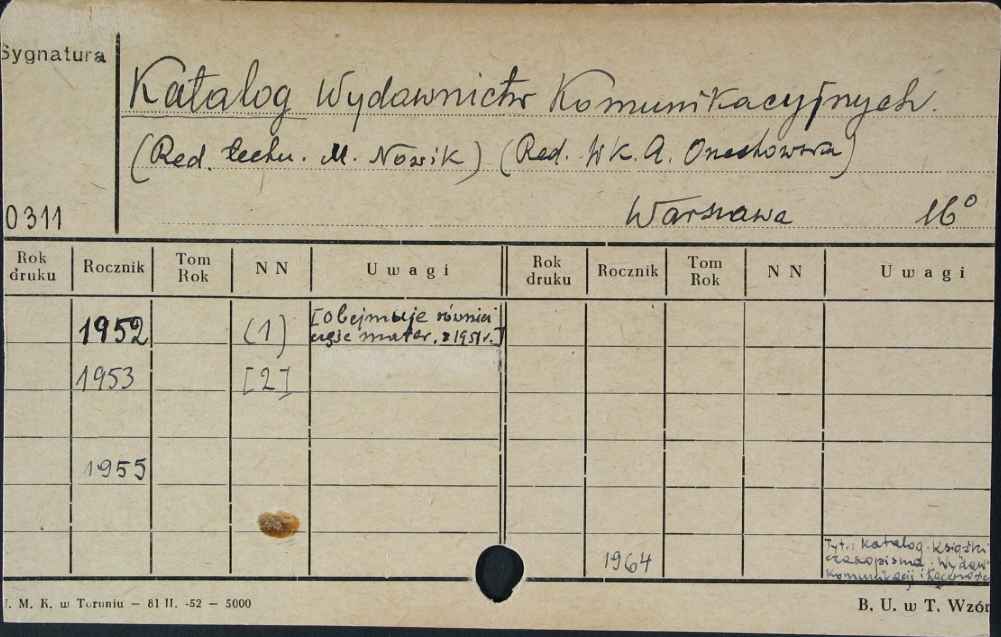 Sygnatura
Katalog Wydawnictw Komunikacyjnych.
(Red. techn. M. Nowik) (Red. WK. A. Orzechowska)
0311
Warszawa 16°
Rok druku Rocznik Tom Rok NN Uwagi Rok druku Rocznik Tom Rok NN Uwagi
1952 (1) [Obejmuje również
część mater. z 1951 r.]
1953 [2]
1955
1964 Tyt.: Katalog. Książki
czasopisma. Wydaw
Komunikacji i Łączności
J. M. K. w Toruniu — 81 II. -52 — 5000 B. U. w T. Wzór